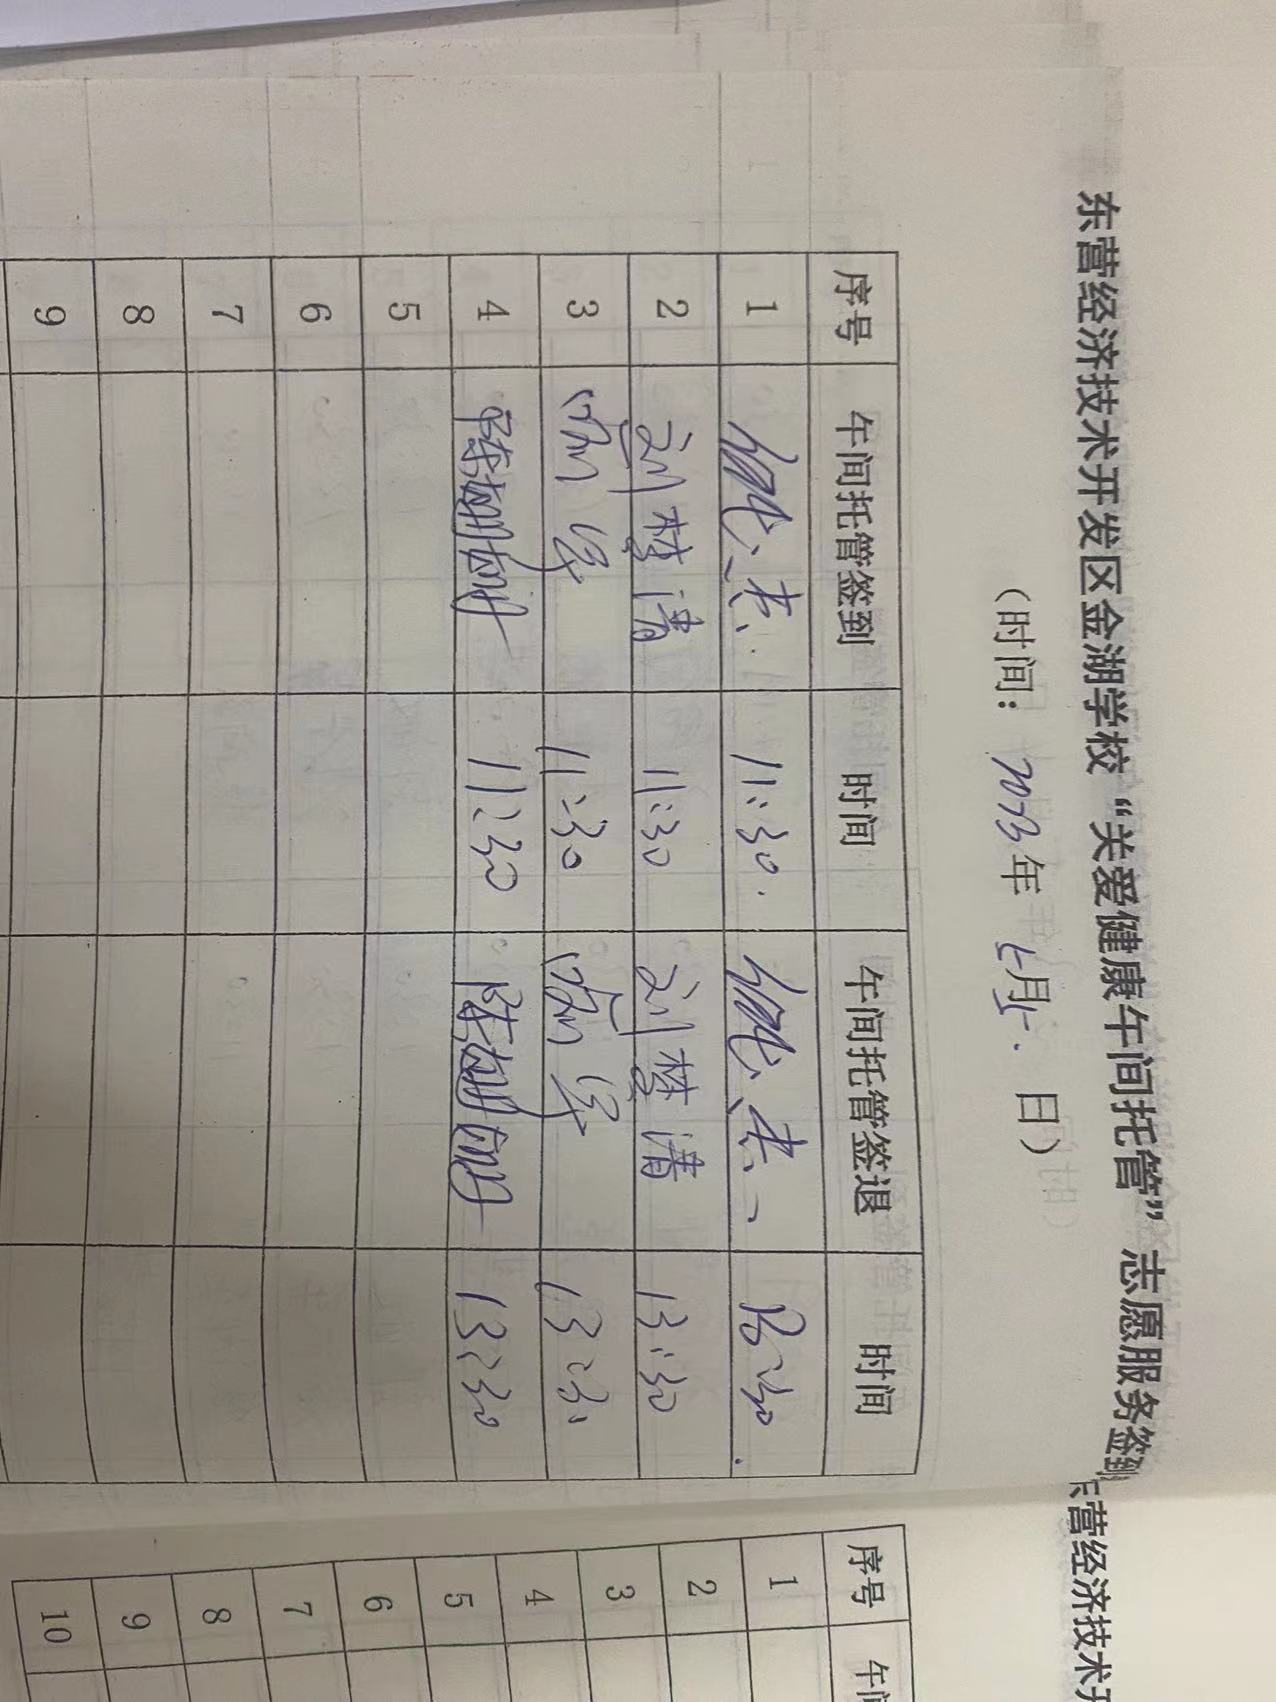 东营经济技术开发区金湖学校“关爱健康午间托管”志愿服务签到
（时间：2023年 月 日）
序号 午间托管签到 时间 午间托管签退 时间
1 11:30. :30.
2 刘梦清 11:30 刘梦清 13:30
3 11:30 13:30
4 陈姗姗 11:30 陈姗姗 13:30
5
6
7
8
9
东营经济技术开
序号 午间
1
2
3
4
5
6
7
8
9
10